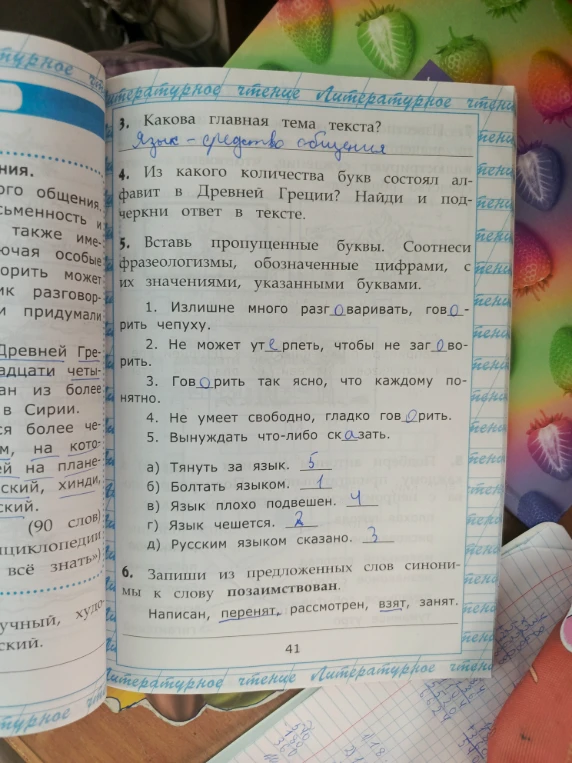 Литературное чтение Литературное чтение
ературное чте
3. Какова главная тема текста?
Язык - средство общения
4. Из какого количества букв состоял ал-
фавит в Древней Греции? Найди и под-
черкни ответ в тексте.
5. Вставь пропущенные буквы. Соотнеси
фразеологизмы, обозначенные цифрами, с
их значениями, указанными буквами.
1. Излишне много разговаривать, гово-
рить чепуху.
2. Не может утерпеть, чтобы не загово-
рить.
3. Говорить так ясно, что каждому по-
нятно.
4. Не умеет свободно, гладко говорить.
5. Вынуждать что-либо сказать.
а) Тянуть за язык. 5
б) Болтать языком. 1
в) Язык плохо подвешен. 4
г) Язык чешется. 2
д) Русским языком сказано. 3
6. Запиши из предложенных слов синони-
мы к слову позаимствован.
Написан, перенят, рассмотрен, взят, занят.
41
Литературное чтение Литературное чтение
ния.
ого общения
сьменность и
также име-
ючая особые
ворить может
ик разговор-
и придумали
Древней Гре-
адцати четы-
ан из более
в Сирии.
ся более че-
м, на кото-
ей на плане-
ский, хинди,
ский.
(90 слов)
нциклопедии
всё знать»)
учный, худо-
ский.